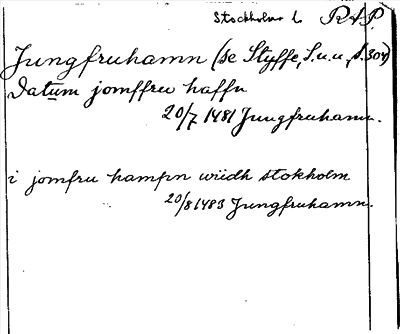 Stockholms L. RAP.
Jungfruhamn (se Styffe, S.u.u., s. 304)
Datum jomffru haffn
20/7 1481 Jungfruhamn.
i jomfru hampn widh stokholm
20/8 1483 Jungfruhamn.